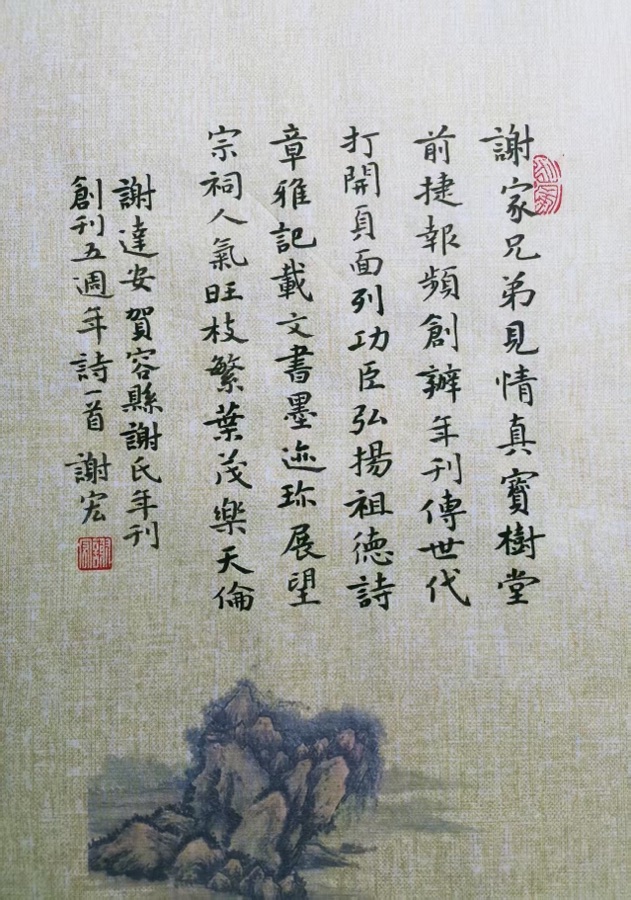 謝家兄弟見情真寳樹堂
前捷報頻創辦年刊傳世代
打開頁面列功臣弘揚祖德詩
章雅記載文書墨迹珎展望
宗祠人氣旺枝繁葉茂樂天倫
謝達安賀容縣謝氏年刊
創刊五週年詩一首 謝宏